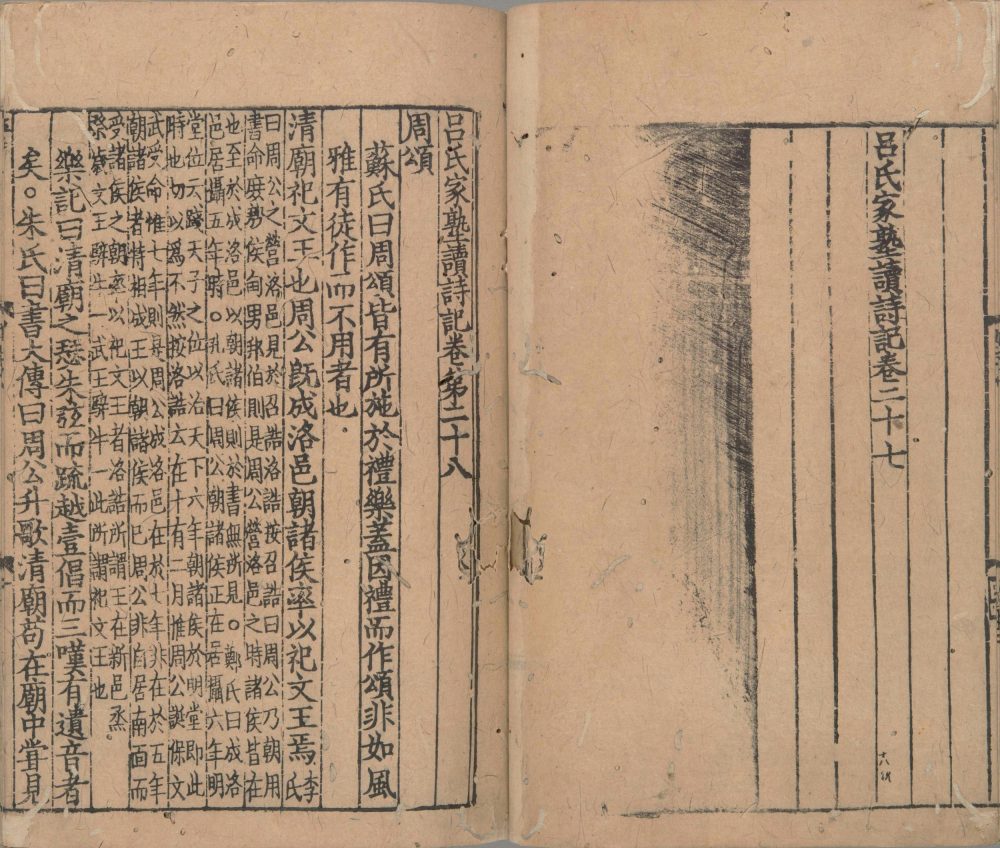 呂氏家塾讀詩記卷二十七
呂氏家塾讀詩記卷第二十八
周頌
蘇氏曰周頌皆有所施於禮樂蓋因禮而作頌非如風
雅有徒作而不用者也
清廟祀文王也周公旣成洛邑朝諸侯率以祀文王焉李氏
曰周公之營洛邑見於召誥洛誥按召誥曰周公乃朝用
書命庶殷侯甸男邦伯則是周公營洛邑之時諸侯皆在
也至於成洛邑以朝諸侯則於書無所見○鄭氏曰成洛
邑居攝五年時○孔氏曰周公朝諸侯正在居攝六年明
堂位云踐天子之位以治天下六年朝諸侯於明堂即此
時也切以爲不然按洛誥云在十有二月惟周公誕保文
武受命惟七年則是周公成洛邑在於七年非在於五年
朝諸侯者特相成王以朝諸侯而已周公非自居南面而
受諸侯之朝率以祀文王者洛誥所謂王在新邑烝
祭歲文王騂牛一武王騂牛一此所謂祀文王也
樂記曰清廟之瑟朱弦而疏越壹倡而三嘆有遺音者
矣○朱氏曰書大傳曰周公升歌清廟苟在廟中嘗見